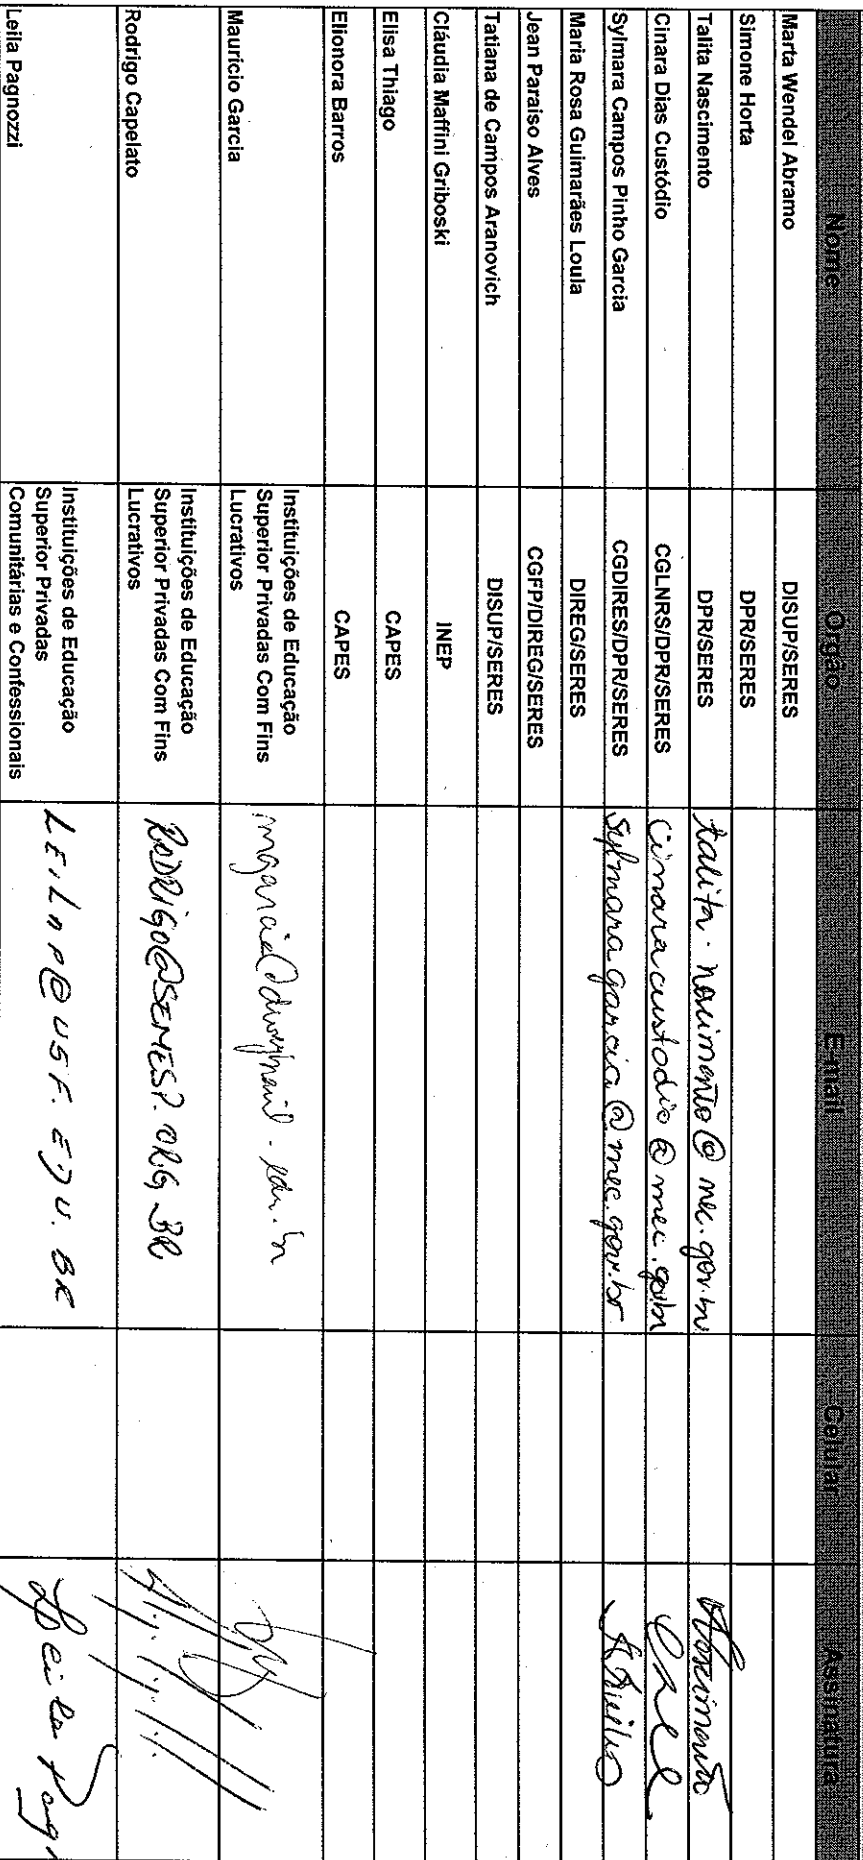 Nome Orgão E-mail Celular Assinatura
Marta Wendel Abramo DISUP/SERES
Simone Horta DPR/SERES
Talita Nascimento DPR/SERES talita.nascimento@mec.gov.br Nascimento
Cinara Dias Custódio CGLNRS/DPR/SERES cinaracustodio@mec.gov.br
Sylmara Campos Pinho Garcia CGDIRES/DPR/SERES sylmara garcia@mec.gov.br
Maria Rosa Guimarães Loula DIREG/SERES
Jean Paraiso Alves CGFP/DIREG/SERES
Tatiana de Campos Aranovich DISUP/SERES
Cláudia Maffini Griboski INEP
Elisa Thiago CAPES
Elionora Barros CAPES
Mauricio Garcia
Instituições de Educação
Superior Privadas Com Fins
Lucrativos
Rodrigo Capelato
Instituições de Educação
Superior Privadas Com Fins
Lucrativos
RODRIGO@SEMESP.ORG.BR
Leila Pagnozzi
Instituições de Educação
Superior Privadas
Comunitárias e Confessionais
LEILAP@USF.EDU.BR
Leila Pagn